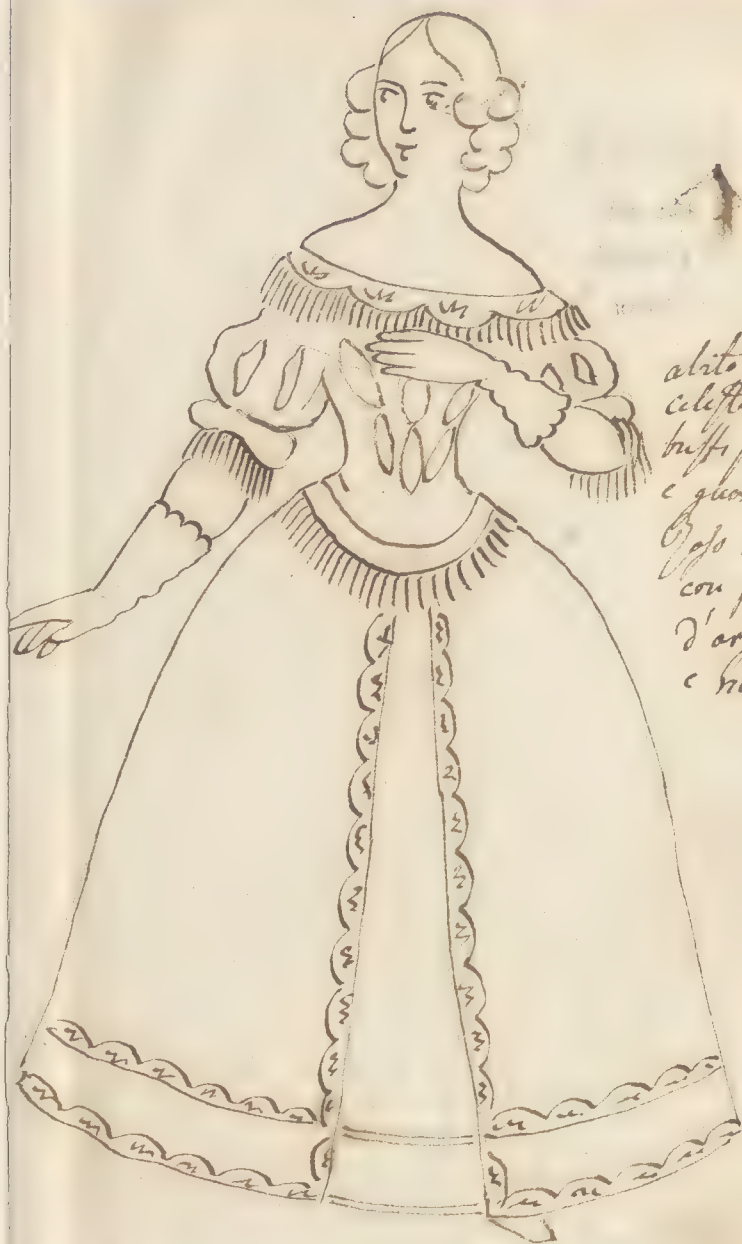 abito
celeste
buffi
e gua
Raso
con
d'ar
e